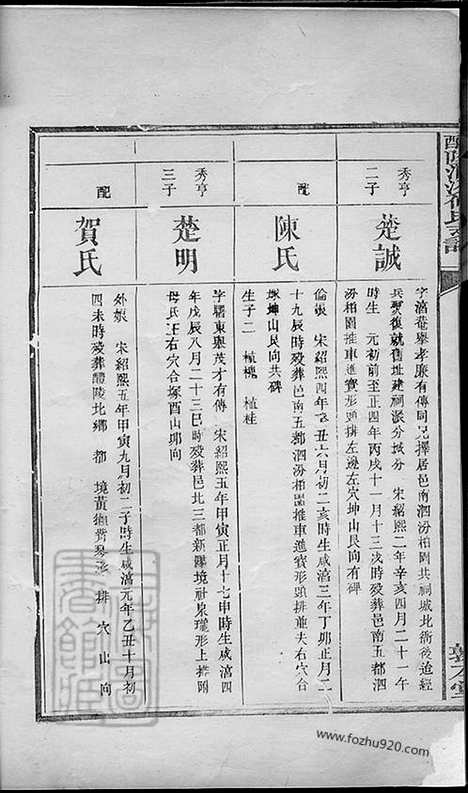 秀亨
二子
楚誠
字滀菴舉孝廉有傳同兄擇居邑南泗汾柏圍共祠城北衝後迨經
兵燹復就舊址建祠派分城分 宋紹熙二年辛亥四月二十一午
時生 元初前至正四年丙戌十一月十三戌時殁葬邑南五都泗
汾柏圍推車進寶形頭排左邊左穴坤山艮向有碑
配
陳氏
倫娘 宋紹熙四年癸丑六月初二亥時生咸滀三年丁卯正月二
十九辰時殁葬邑南五都泗汾柏圍推車進寶形頭排並夫右穴合
塚坤山艮向共碑
生子二 植槐 植桂
秀亨
三子
楚明
字曙東舉茂才有傳 宋紹熙五年甲寅正月十七申時生咸滀四
年戊辰八月二十三巳時殁葬邑北三都新開境社泉瓏形上排附
母氏王右穴合塚酉山卯向
配
賀氏
外娘 宋紹熙五年甲寅九月初二子時生咸滀元年乙丑十月初
四未時殁葬醴陵北鄉 都 境黃獺 琴形 排 穴 山 向
www.fozhu920.com